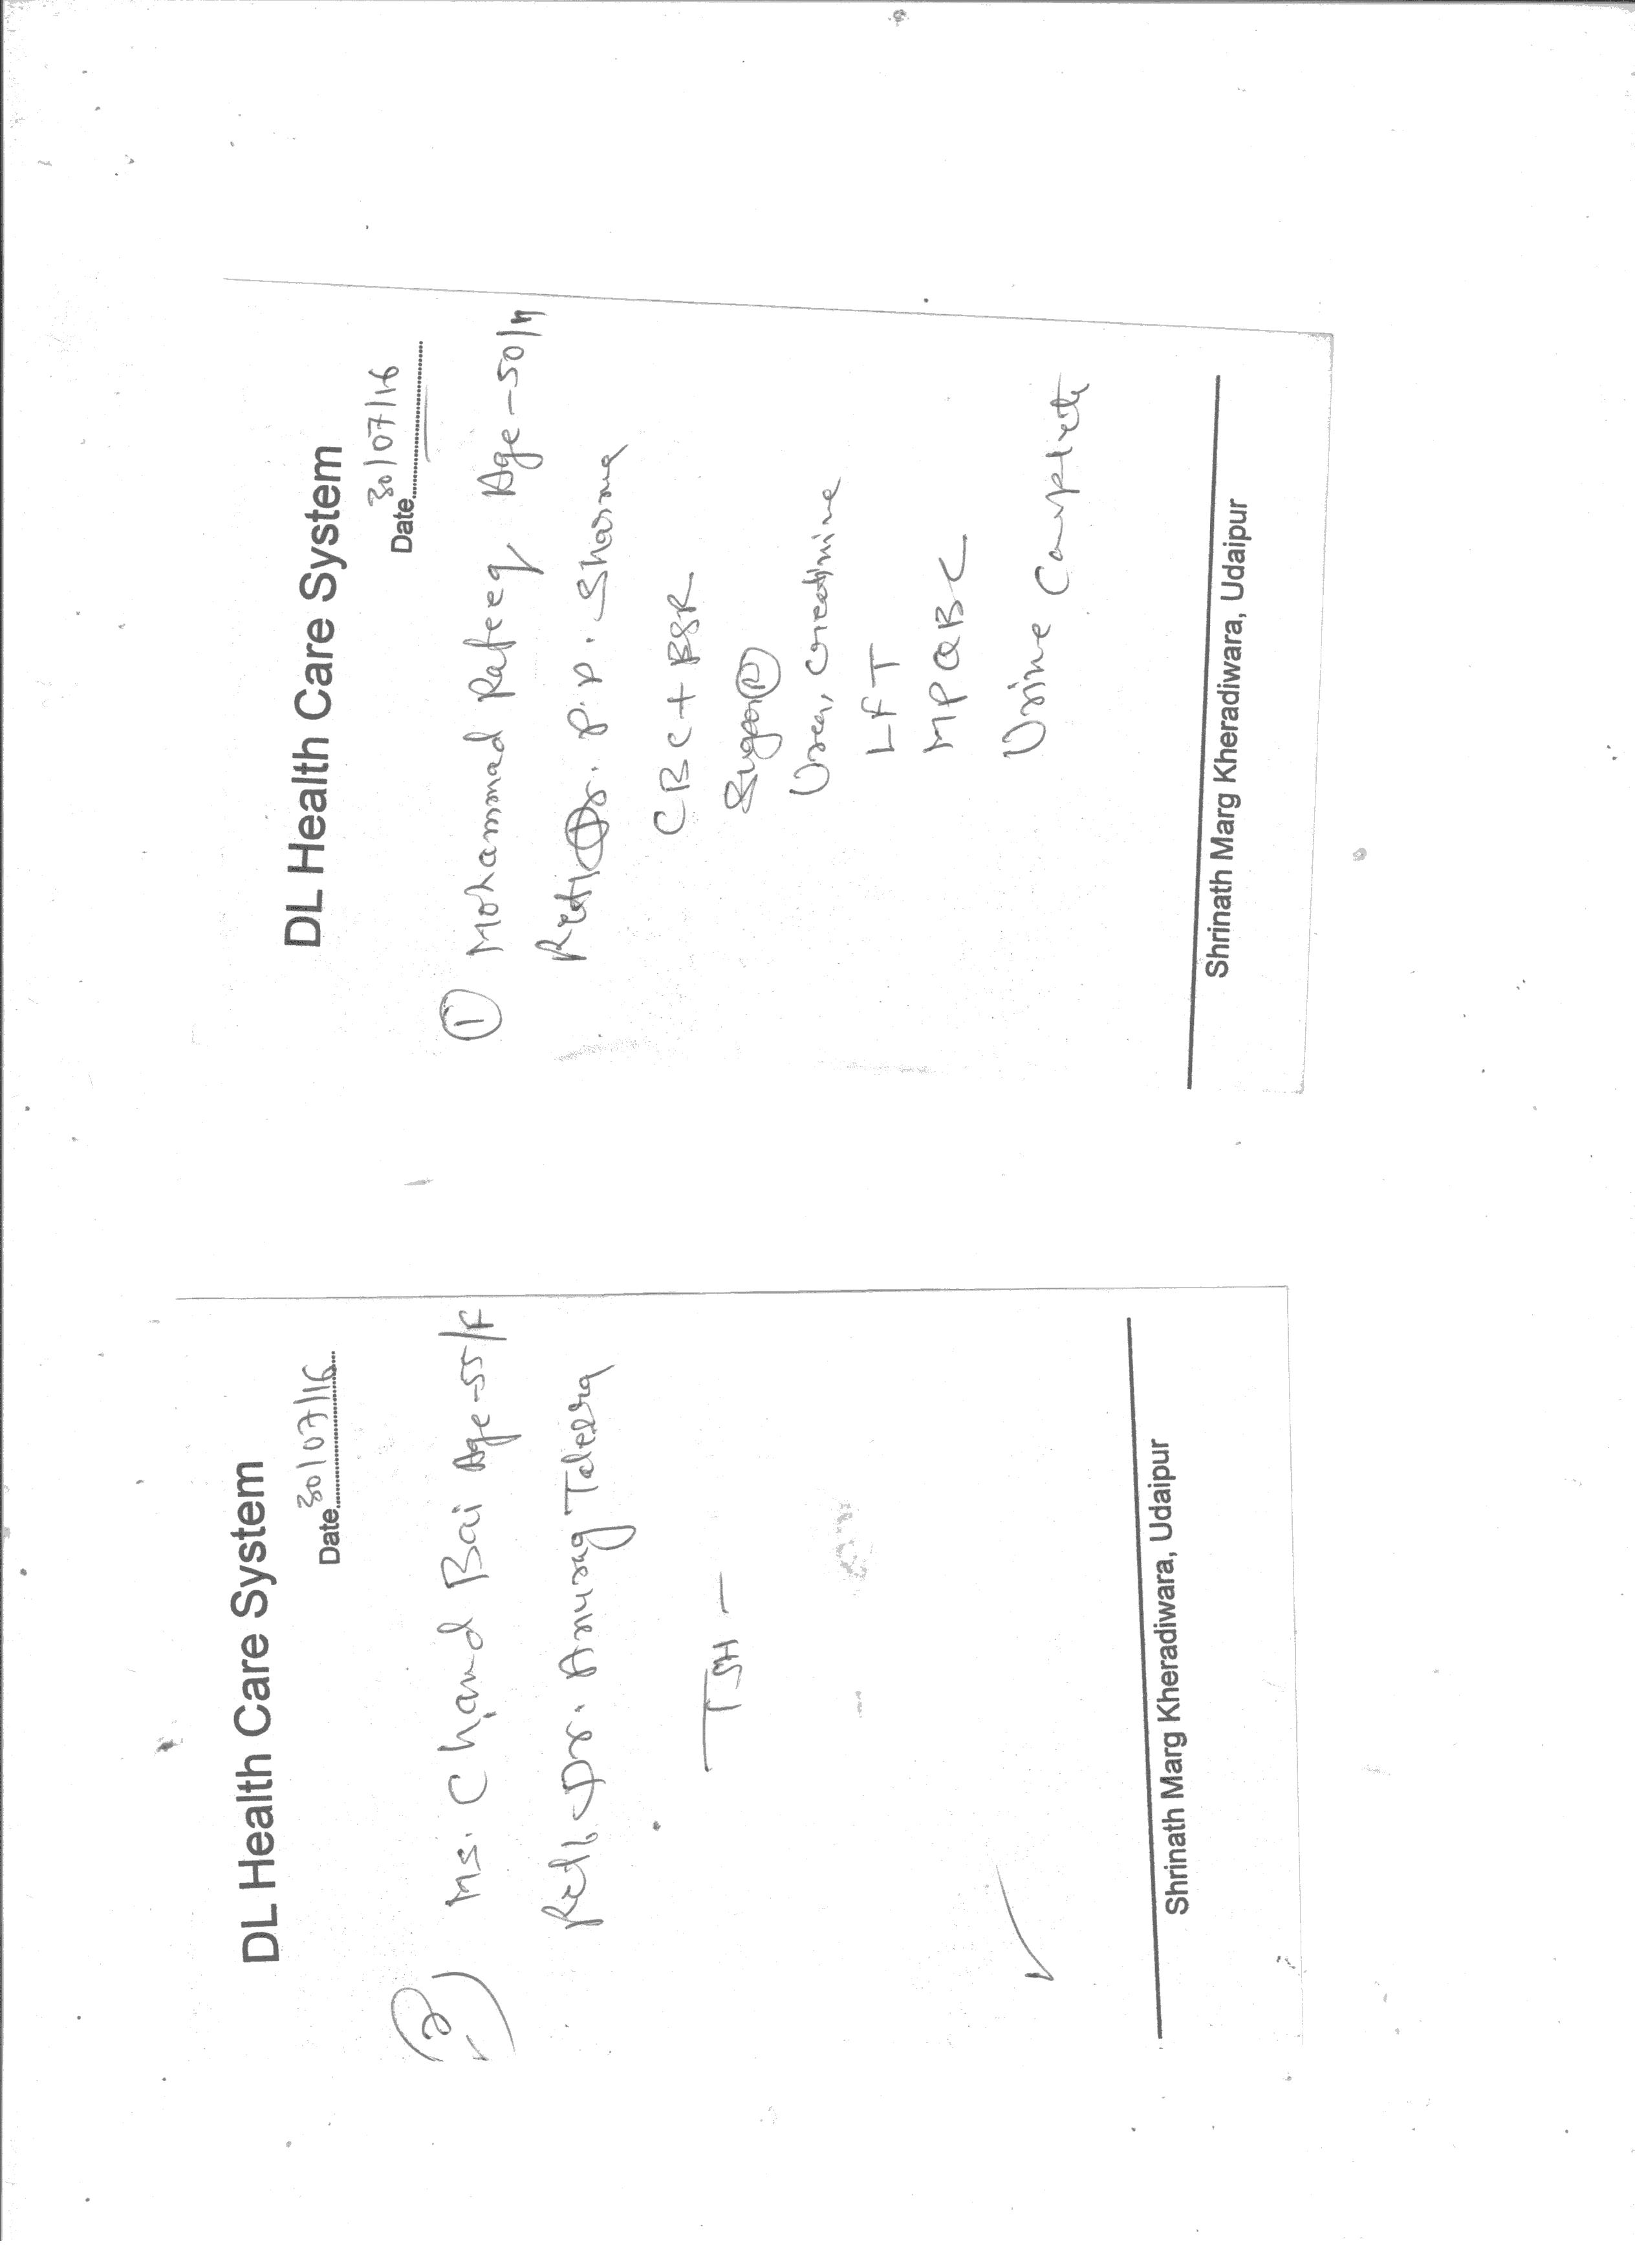 DL Health Care System
Date 30/07/16
② Ms. Chand Bai Age-55/F
Ref. Dr. Anurag Talesra
TSH -
Shrinath Marg Kheradiwara, Udaipur
DL Health Care System
Date 30/07/16
① Mohammad Rafeeq Age-50/M
Ref. Dr. P.P. Sharma
CBC + ESR
Sugar Ⓡ
Urea, Creatinine
LFT
MPQBC
Urine Complete
Shrinath Marg Kheradiwara, Udaipur